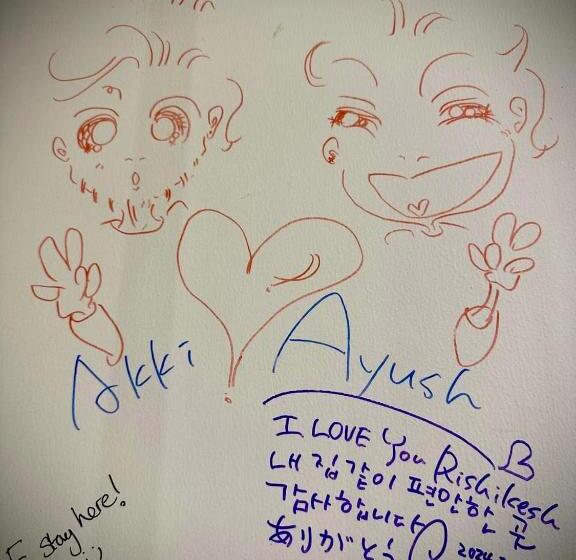 Akki
Ayush
I LOVE You Rishikesh
내 집 같이 편안한 곳
감사합니다
ありがとう
stay here!